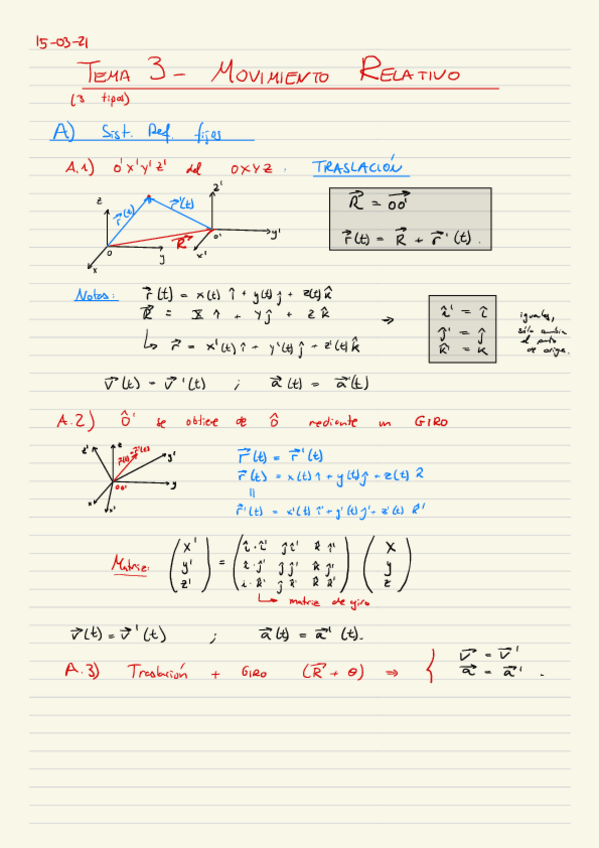 15-03-21
TEMA 3 - MOVIMIENTO RELATIVO
(3 tipos)
A) Sist. Ref. fijos
A.1) O'X'Y'Z' del OXYZ : TRASLACIÓN
z r⃗(t) r⃗'(t) z' R⃗ O O' x y x' y'
R⃗ = OO'⃗
r⃗(t) = R⃗ + r⃗'(t).
Notas: r⃗(t) = x(t) î + y(t) ĵ + z(t) k̂
R⃗ = X î + Y ĵ + Z k̂ →
↳ r⃗ = x'(t) î + y'(t) ĵ + z'(t) k̂
î' = î
ĵ' = ĵ
k̂' = k̂
iguales,
sólo cambia
el pto
de origen.
v⃗(t) = v⃗'(t) ; a⃗(t) = a⃗'(t)
A.2) Ô' se obtiene de Ô mediante un GIRO
z' z r⃗(t)=r⃗'(t) y' OO' y x x'
r⃗(t) = r⃗'(t)
r⃗(t) = x(t) î + y(t) ĵ + z(t) k̂
||
r⃗'(t) = x'(t) î' + y'(t) ĵ' + z'(t) k̂'
Matriz: (x' y' z') = (î·î' ĵ î' k̂ î' î·ĵ' ĵ ĵ' k̂ ĵ' î·k̂' ĵ k̂' k̂ k̂') (x y z)
↳ matriz de giro
v⃗(t) = v⃗'(t) ; a⃗(t) = a⃗'(t).
A.3) Traslación + GIRO (R⃗ + θ) ⇒ { v⃗ = v⃗'
a⃗ = a⃗' .